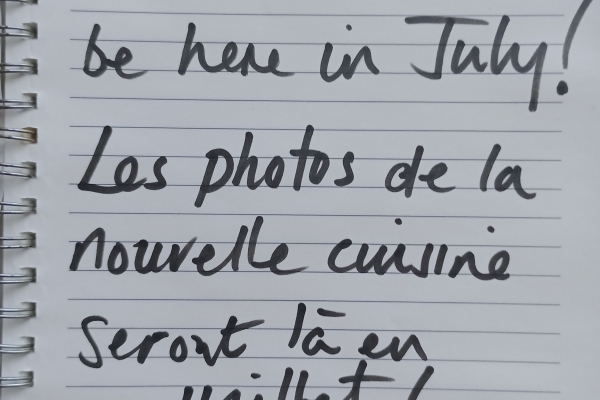 be here in July!
Les photos de la
nouvelle cuisine
seront là en
juillet!